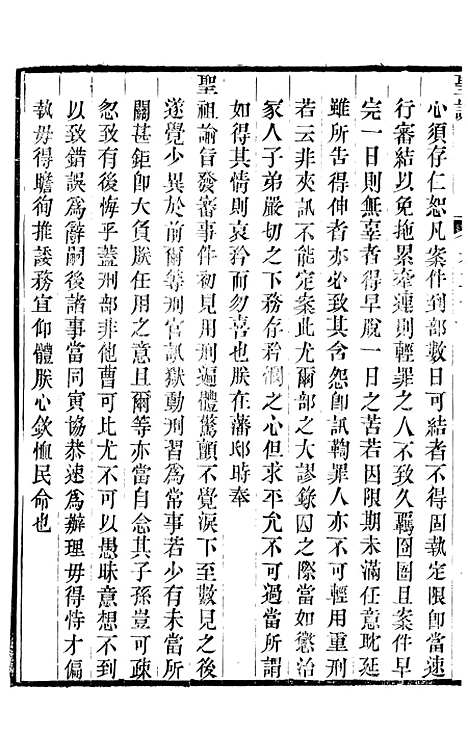 心須存仁恕凡案件到部數日可結者不得固執定限卽當速
行審結以免拖累牽連則輕罪之人不致久羈囹圄且案件早
完一日則無辜者得早脫一日之苦若因限期未滿任意耽延
雖所告得伸者亦必致其含怨卽訊鞫罪人亦不可輕用重刑
若云非夾訊不能定案此尤爾部之大謬錄囚之際當如懲治
家人子弟嚴切之下務存矜憫之心但求平允不可過當所謂
如得其情則哀矜而勿喜也朕在藩邸時奉
聖祖諭旨發審事件初見用刑遍體驚顫不覺淚下至數見之後
遂覺少異於前爾等刑官訊獄動刑習為常事若少有未當所
關甚鉅卽大負朕任用之意且爾等亦當自念其子孫豈可疎
忽致有後悔乎蓋刑部非他曹可比尤不可以愚昧意想不到
以致錯誤為辭嗣後諸事當同寅協恭速為辦理毋得恃才偏
執毋得瞻徇推諉務宜仰體朕心欽恤民命也